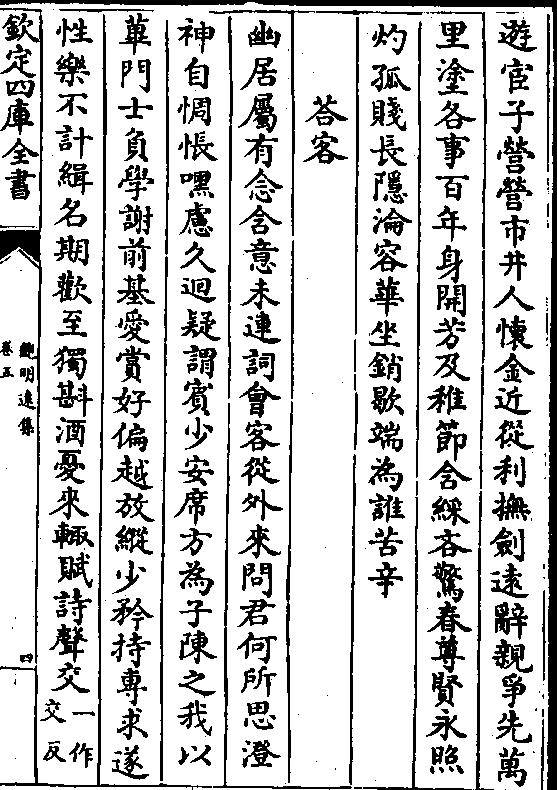 遊宦子營營市井人懷金近從利撫劍遠辭親爭先萬
里塗各事百年身開芳及稚節含綵吝驚春尊賢永照
灼孤賤長隱淪容華坐銷歇端為誰苦辛
荅客
幽居屬有念含意未連詞會客從外來問君何所思澄
神自惆悵嘿慮久迴疑謂賓少安席方為子陳之我以
蓽門士負學謝前基愛賞好偏越放縱少矜持專求遂
性樂不計緝名期歡至獨斟酒憂來輙賦詩聲交一作交反
欽定四庫全書
鮑明遠集
卷五
四